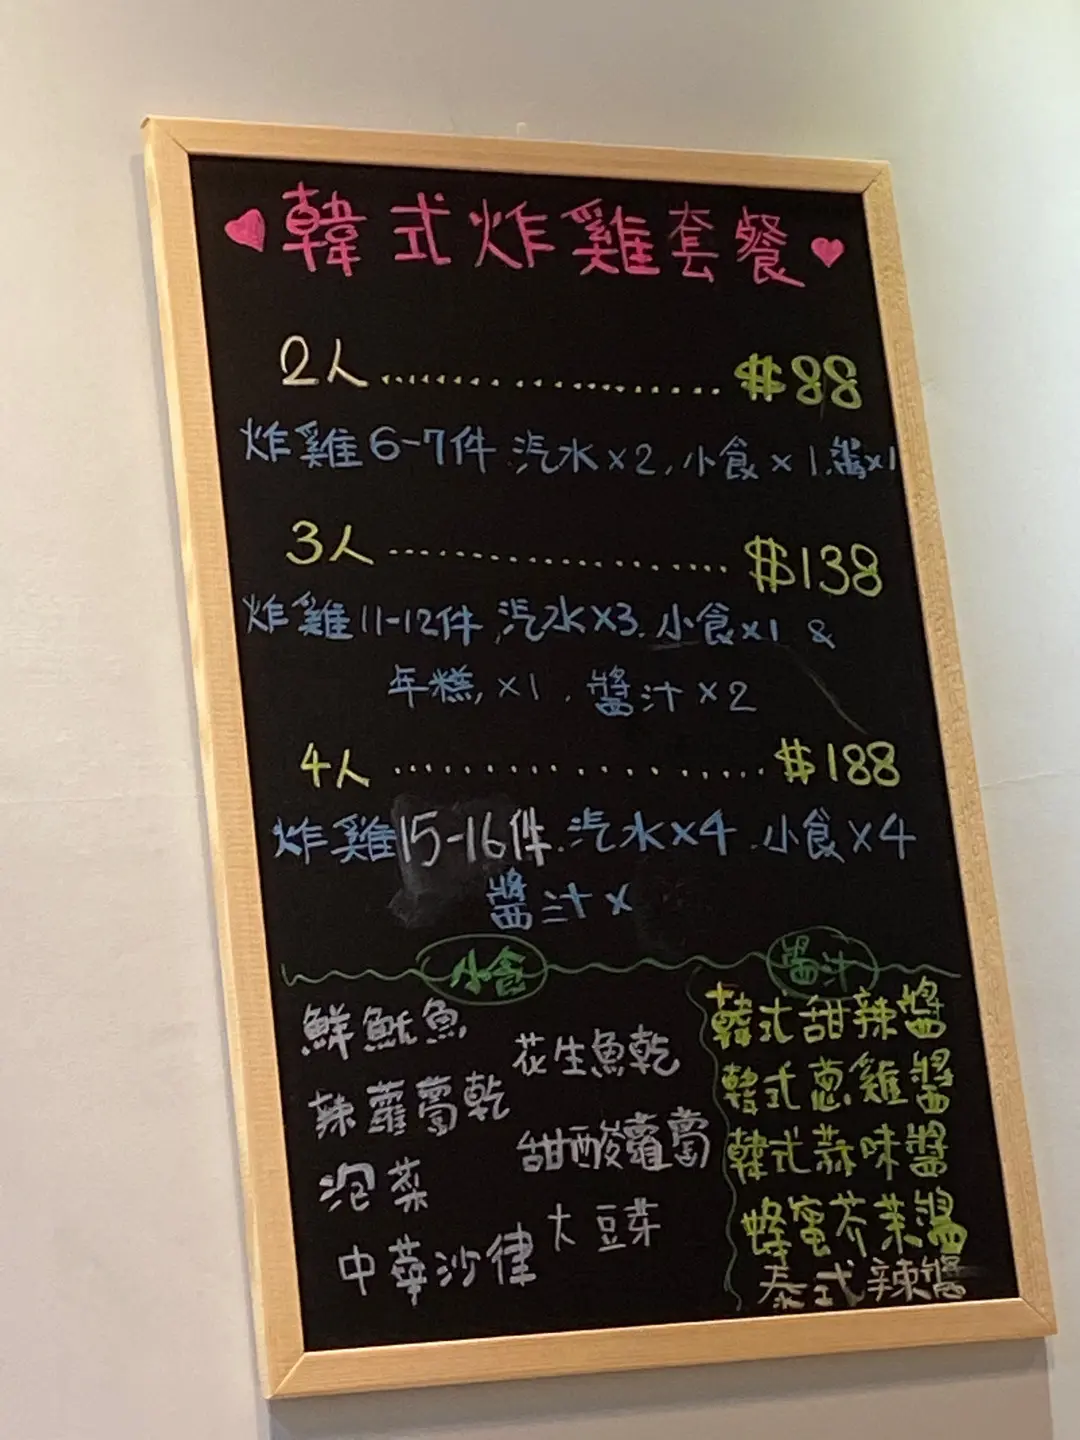 ♥韓式炸雞套餐♥
2人..............................$88
炸雞6-7件.汽水×2,小食×1.醬×1
3人..............................$138
炸雞11-12件,汽水×3.小食×1 &
年糕,×1.醬汁×2
4人..............................$188
炸雞15-16件.汽水×4.小食×4
醬汁×
小食
鮮魷魚
花生魚乾
辣蘿蔔乾
甜酸蘿蔔
泡菜
大豆芽
中華沙律
醬汁
韓式甜辣醬
韓式蔥雞醬
韓式蒜味醬
蜂蜜芥茉醬
泰式辣醬